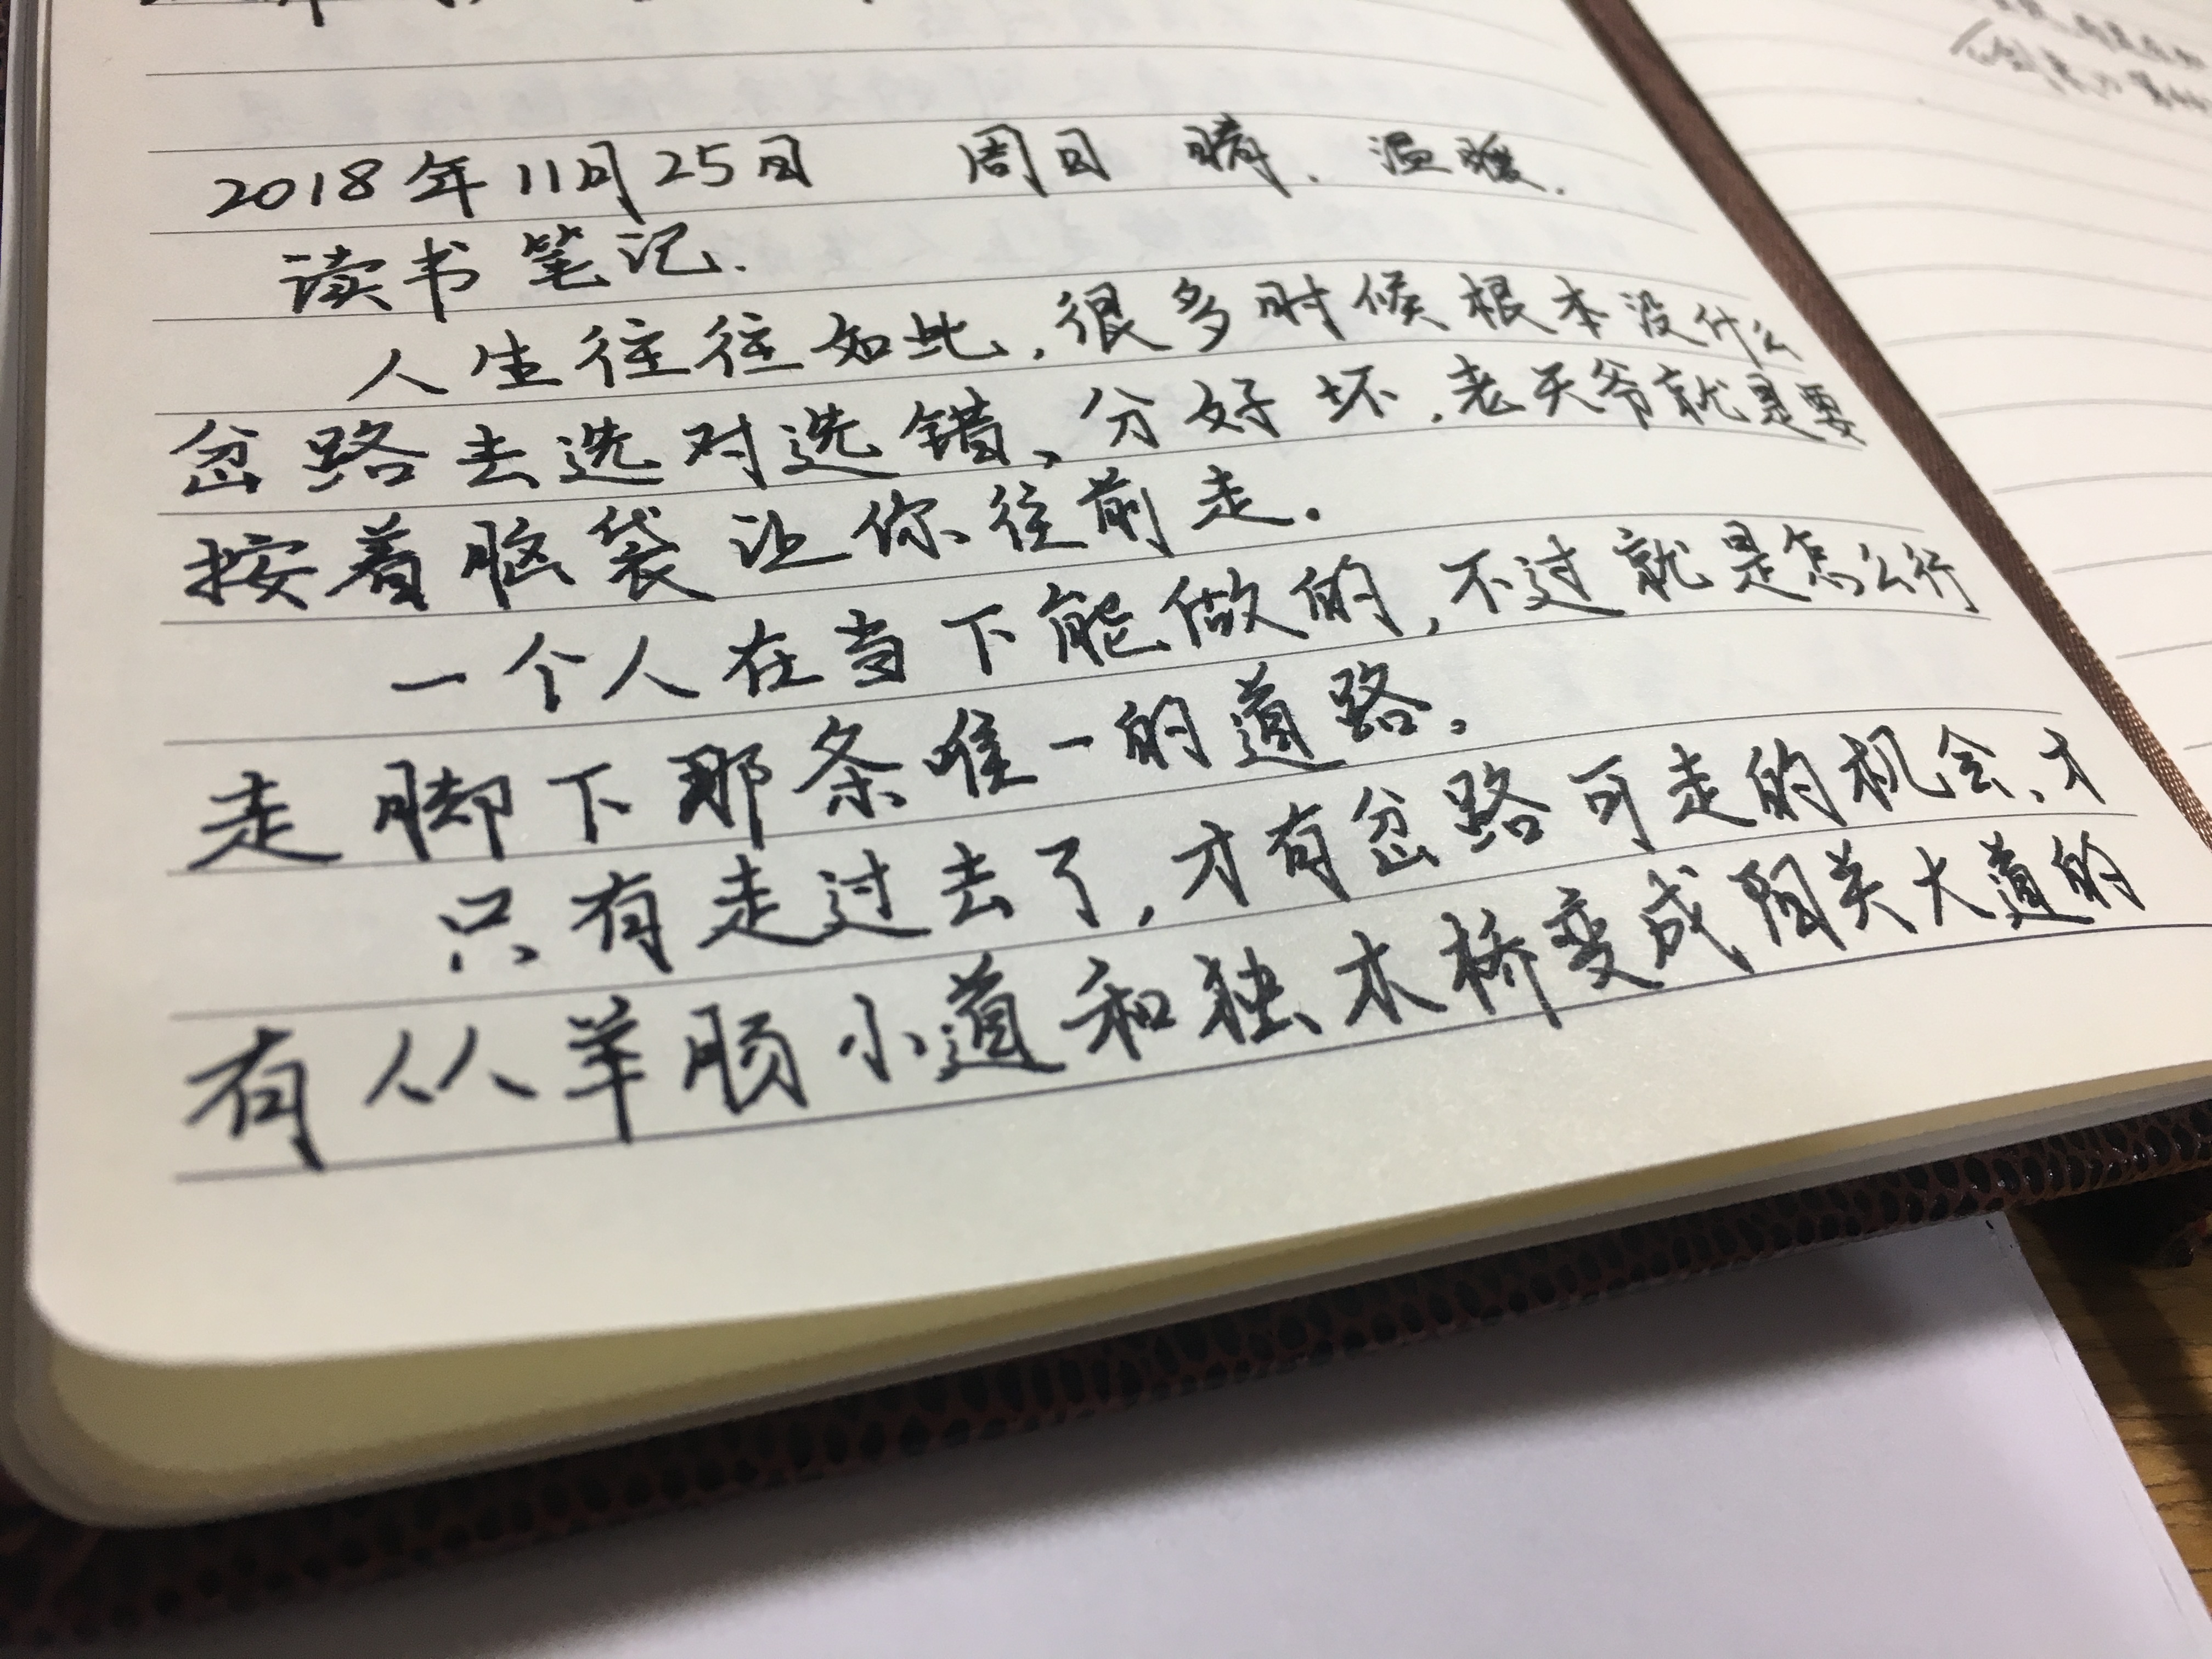 2018年11月25日 周日 晴. 温暖.
读书笔记.
人生往往如此,很多时候根本没什么
岔路去选对选错、分好坏,老天爷就是要
按着脑袋让你往前走.
一个人在当下能做的,不过就是怎么行
走脚下那条唯一的道路.
只有走过去了,才有岔路可走的机会、才
有从羊肠小道和独木桥变成阳关大道的